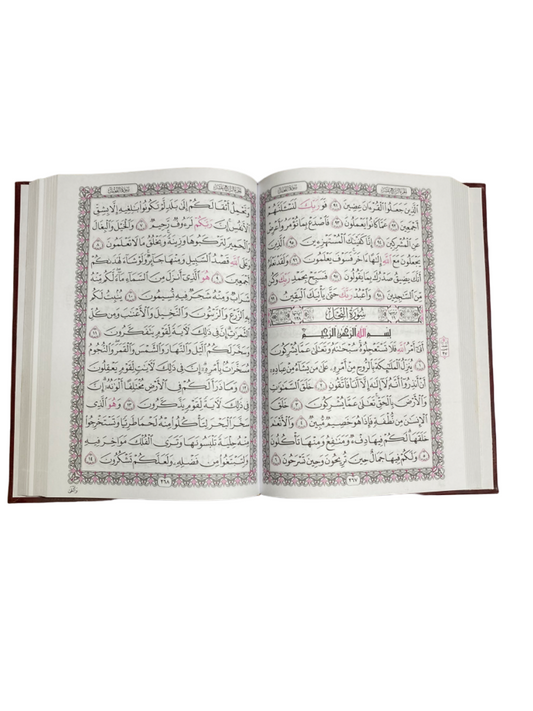 الجزء الرابع عشر
سورة النحل
ٱلَّذِينَ جَعَلُوا۟ ٱلْقُرْءَانَ عِضِينَ ٩١ فَوَرَبِّكَ لَنَسْـَٔلَنَّهُمْ
أَجْمَعِينَ ٩٢ عَمَّا كَانُوا۟ يَعْمَلُونَ ٩٣ فَٱصْدَعْ بِمَا تُؤْمَرُ وَأَعْرِضْ
عَنِ ٱلْمُشْرِكِينَ ٩٤ إِنَّا كَفَيْنَٰكَ ٱلْمُسْتَهْزِءِينَ ٩٥ ٱلَّذِينَ
يَجْعَلُونَ مَعَ ٱللَّهِ إِلَٰهًا ءَاخَرَ فَسَوْفَ يَعْلَمُونَ ٩٦ وَلَقَدْ نَعْلَمُ
أَنَّكَ يَضِيقُ صَدْرُكَ بِمَا يَقُولُونَ ٩٧ فَسَبِّحْ بِحَمْدِ رَبِّكَ وَكُن
مِّنَ ٱلسَّٰجِدِينَ ٩٨ وَٱعْبُدْ رَبَّكَ حَتَّىٰ يَأْتِيَكَ ٱلْيَقِينُ ٩٩
سُورَةُ النَّحْلِ
بِسْمِ ٱللَّهِ ٱلرَّحْمَٰنِ ٱلرَّحِيمِ
أَتَىٰٓ أَمْرُ ٱللَّهِ فَلَا تَسْتَعْجِلُوهُ سُبْحَٰنَهُۥ وَتَعَٰلَىٰ عَمَّا يُشْرِكُونَ
١ يُنَزِّلُ ٱلْمَلَٰٓئِكَةَ بِٱلرُّوحِ مِنْ أَمْرِهِۦ عَلَىٰ مَن يَشَآءُ مِنْ عِبَادِهِۦٓ
أَنْ أَنذِرُوٓا۟ أَنَّهُۥ لَآ إِلَٰهَ إِلَّآ أَنَا۠ فَٱتَّقُونِ ٢ خَلَقَ ٱلسَّمَٰوَٰتِ
وَٱلْأَرْضَ بِٱلْحَقِّ تَعَٰلَىٰ عَمَّا يُشْرِكُونَ ٣ خَلَقَ
ٱلْإِنسَٰنَ مِن نُّطْفَةٍ فَإِذَا هُوَ خَصِيمٌ مُّبِينٌ ٤ وَٱلْأَنْعَٰمَ
خَلَقَهَا لَكُمْ فِيهَا دِفْءٌ وَمَنَٰفِعُ وَمِنْهَا تَأْكُلُونَ
٥ وَلَكُمْ فِيهَا جَمَالٌ حِينَ تُرِيحُونَ وَحِينَ تَسْرَحُونَ ٦
٢٦٧
الجزء الرابع عشر
وَتَحْمِلُ أَثْقَالَكُمْ إِلَىٰ بَلَدٍ لَّمْ تَكُونُوا۟ بَٰلِغِيهِ إِلَّا بِشِقِّ
ٱلْأَنفُسِ إِنَّ رَبَّكُمْ لَرَءُوفٌ رَّحِيمٌ ٧ وَٱلْخَيْلَ وَٱلْبِغَالَ
وَٱلْحَمِيرَ لِتَرْكَبُوهَا وَزِينَةً وَيَخْلُقُ مَا لَا تَعْلَمُونَ ٨
وَعَلَى ٱللَّهِ قَصْدُ ٱلسَّبِيلِ وَمِنْهَا جَآئِرٌ وَلَوْ شَآءَ لَهَدَىٰكُمْ
أَجْمَعِينَ ٩ هُوَ ٱلَّذِىٓ أَنزَلَ مِنَ ٱلسَّمَآءِ مَآءً لَّكُم مِّنْهُ
شَرَابٌ وَمِنْهُ شَجَرٌ فِيهِ تُسِيمُونَ ١٠ يُنۢبِتُ لَكُم
بِهِ ٱلزَّرْعَ وَٱلزَّيْتُونَ وَٱلنَّخِيلَ وَٱلْأَعْنَٰبَ وَمِن كُلِّ
ٱلثَّمَرَٰتِ إِنَّ فِى ذَٰلِكَ لَءَايَةً لِّقَوْمٍ يَتَفَكَّرُونَ ١١
وَسَخَّرَ لَكُمُ ٱلَّيْلَ وَٱلنَّهَارَ وَٱلشَّمْسَ وَٱلْقَمَرَ وَٱلنُّجُومُ
مُسَخَّرَٰتٌۢ بِأَمْرِهِۦٓ إِنَّ فِى ذَٰلِكَ لَءَايَٰتٍ لِّقَوْمٍ يَعْقِلُونَ
١٢ وَمَا ذَرَأَ لَكُمْ فِى ٱلْأَرْضِ مُخْتَلِفًا أَلْوَٰنُهُۥٓ إِنَّ
فِى ذَٰلِكَ لَءَايَةً لِّقَوْمٍ يَذَّكَّرُونَ ١٣ وَهُوَ ٱلَّذِى
سَخَّرَ ٱلْبَحْرَ لِتَأْكُلُوا۟ مِنْهُ لَحْمًا طَرِيًّا وَتَسْتَخْرِجُوا۟
مِنْهُ حِلْيَةً تَلْبَسُونَهَا وَتَرَى ٱلْفُلْكَ مَوَاخِرَ فِيهِ
وَلِتَبْتَغُوا۟ مِن فَضْلِهِۦ وَلَعَلَّكُمْ تَشْكُرُونَ ١٤
٢٦٨